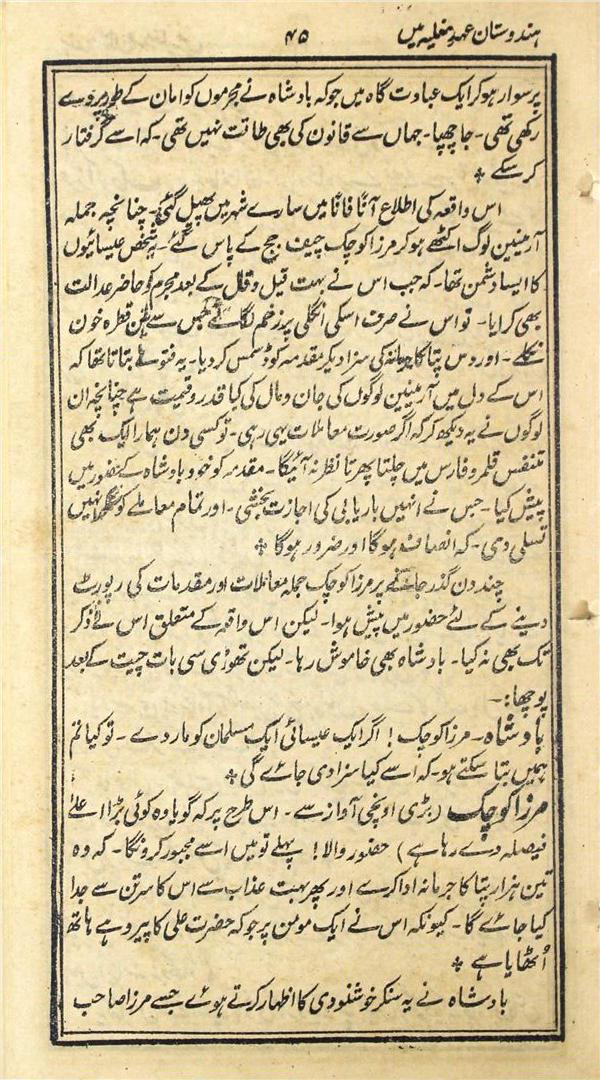 ہندوستان عہدِ مغلیہ میں
۴۵
پر سوار ہوکر ایک عبادت گاہ میں جوکہ بادشاہ نے مجرموں کو امان کے طور پر دے
رکھی تھی۔ جا چھپا۔ جہاں سے قانون کی بھی طاقت نہیں تھی۔ کہ اسے گرفتار
کر سکے ٭
اس واقعہ کی اطلاع آناً فاناً میں سارے شہر میں پھیل گئی۔ چنانچہ جملہ
آرمینین لوگ اکٹھے ہوکر مرزا کوچک چیف جج کے پاس گئے۔ یہ شخص عیسائیوں
کا ایسا دشمن تھا۔ کہ جب اس نے بہت قیل و قال کے بعد مجرم کو حاضر عدالت
بھی کرایا۔ تو اس نے صرف اسکی انگلی پر زخم لگائے جس سے تین قطرہ خون
نکلے۔ اور دس پتا کا جرمانہ کی سزا دیکر مقدمہ کو ڈسمس کر دیا۔ یہ فتوےٰ بتاتا تھا کہ
اس کے دل میں آرمینین لوگوں کی جان و مال کی کیا قدر و قیمت ہے چنانچہ ان
لوگوں نے یہ دیکھ کر کہ اگر صورت معاملات یہی رہی۔ تو کسی دن ہمارا ایک بھی
تنفس قلمرو فارس میں چلتا پھرتا نظر نہ آئیگا۔ مقدمہ کو خود بادشاہ کے حضور میں
پیش کیا۔ جس نے انہیں باریابی کی اجازت بخشی۔ اور تمام معاملے کو انہیں
تسلی دی۔ کہ انصاف ہوگا اور ضرور ہوگا ٭
چند دن گذر جانے پر مرزا کوچک جملہ معاملات اور مقدمات کی رپورٹ
دینے کے لئے حضور میں پیش ہوا۔ لیکن اس واقعہ کے متعلق اس نے ذکر
تک بھی نہ کیا۔ بادشاہ بھی خاموش رہا۔ لیکن تھوڑی سی بات چیت کے بعد
پوچھا:۔
بادشاہ۔ مرزا کوچک! اگر ایک عیسائی ایک مسلمان کو مار دے۔ تو کیا تم
ہمیں بتا سکتے ہو۔ کہ اسے کیا سزا دی جائے گی ٭
مرزا کوچک (بڑی اونچی آواز سے۔ اس طرح پر کہ گویا وہ کوئی بڑا اعلےٰ
فیصلہ دے رہا ہے) حضور والا! پہلے تو میں اسے مجبور کرونگا۔ کہ وہ
تین ہزار پتا کا جرمانہ ادا کرے اور پھر بہت عذاب سے اس کا سر تن سے جدا
کیا جائے گا۔ کیونکہ اس نے ایک مومن پر جو کہ حضرت علی کا پیرو ہے ہاتھ
اٹھایا ہے ٭
بادشاہ نے یہ سنکر خوشنودی کا اظہار کرتے ہوئے جسے مرزا صاحب